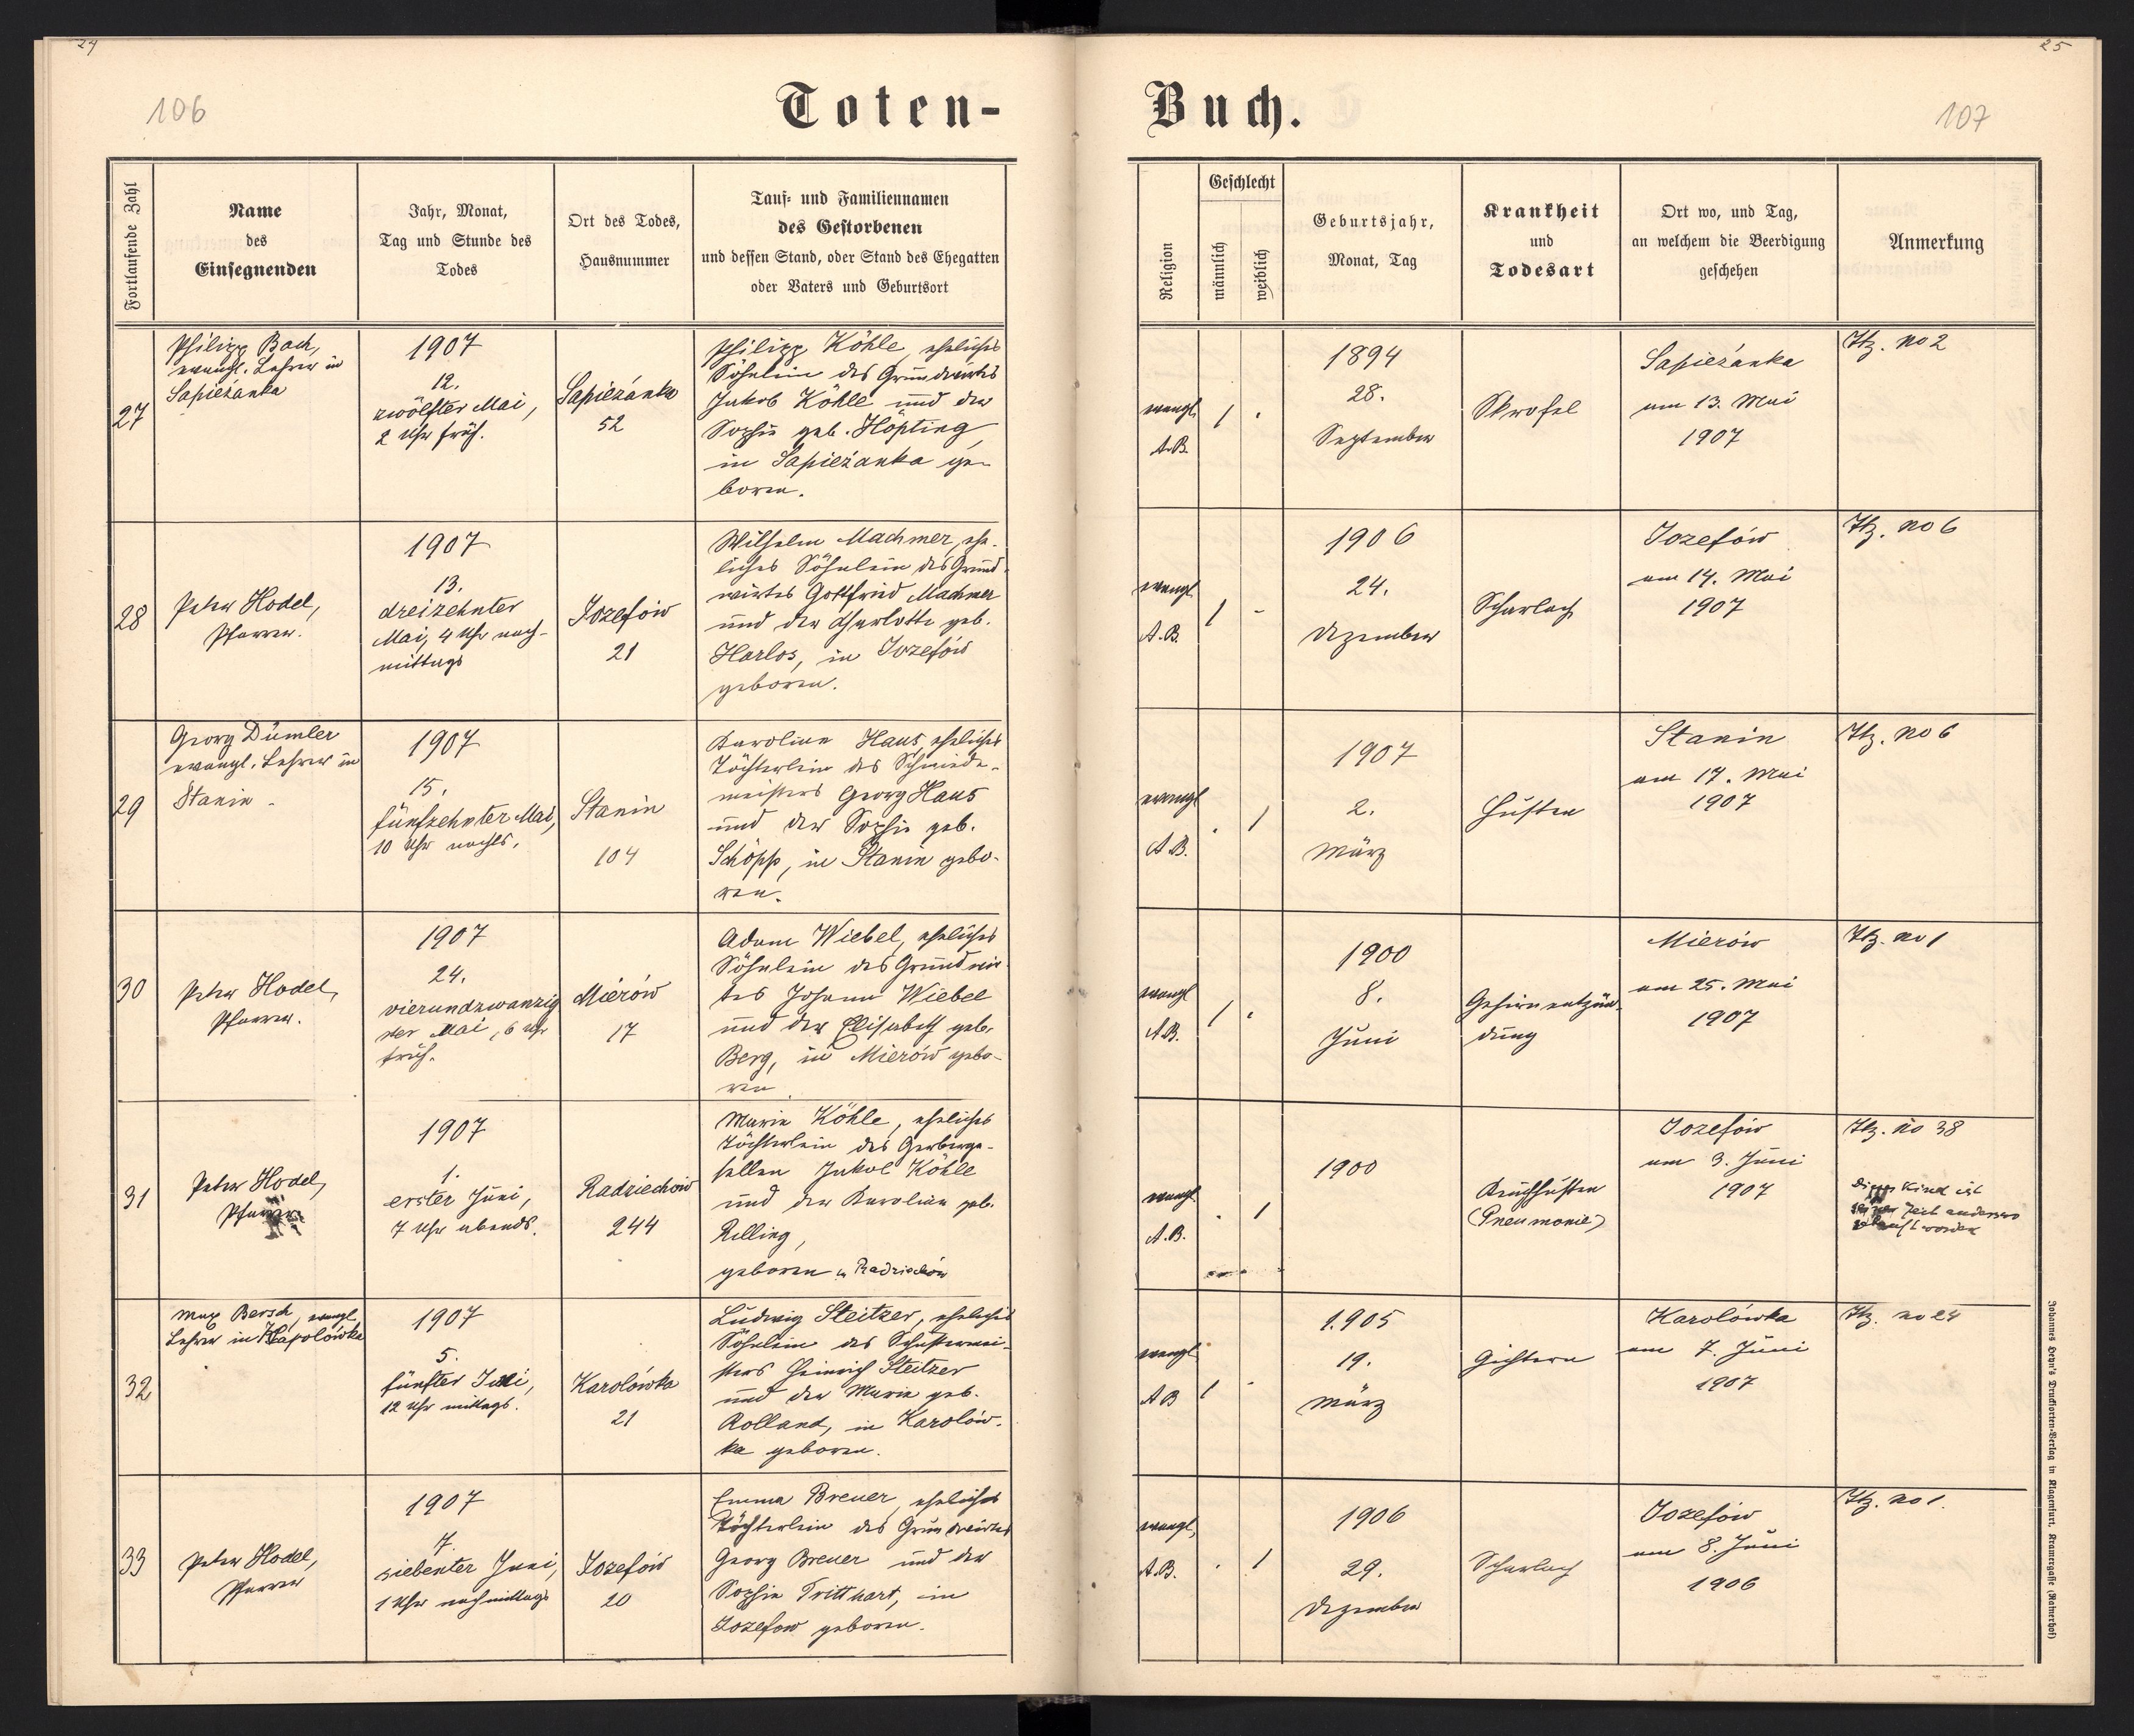 24
106
Toten-
Fortlaufende Zahl
Name
des
Einsegnenden
Jahr, Monat,
Tag und Stunde des
Todes
Ort des Todes,
Hausnummer
Tauf- und Familiennamen
des Gestorbenen
und dessen Stand, oder Stand des Ehegatten
oder Vaters und Geburtsort
27
Philipp Bach,
evangl. Lehrer in
Sapieżanka
1907
12.
zwölfter Mai,
2 Uhr früh.
Sapieżanka
52
Philipp Köhle, eheliches
Söhnlein des Grundwirtes
Jakob Köhle und der
Sophie geb. Höpting,
in Sapieżanka ge-
boren.
28
Peter Hodel,
Pfarrer.
1907
13.
dreizehnter
Mai, 4 Uhr nach-
mittags
Jozefów
21
Wilhelm Machmer, ehe-
liches Söhnlein des Grund-
wirtes Gottfried Machmer
und der Charlotte geb.
Harlos, in Jozefów
geboren.
29
Georg Dümler
evangl. Lehrer in
Stanin
1907
15.
fünfzehnter Mai,
10 Uhr nachts.
Stanin
104
Karoline Haus, eheliches
Töchterlein des Schmiede-
meisters Georg Haus
und der Sophie geb.
Schöpp, in Stanin gebo-
ren.
30
Peter Hodel,
Pfarrer.
1907
24.
vierundzwanzig
ster Mai, 6 Uhr
früh.
Mierów
17
Adam Wiebel, eheliches
Söhnlein des Grundwir-
tes Johann Wiebel
und der Elisabeth geb.
Berg, in Mierów gebo-
ren
31
Peter Hodel,
Pfarrer
1907
1.
erster Juni,
7 Uhr abends.
Radziechów
244
Marie Köhle, eheliches
Töchterlein des Gerberge-
sellen Jakob Köhle
und der Karoline geb.
Relling,
geboren in Radziechów
32
Max Bersch, evangl.
Lehrer in Karolówka
1907
5.
fünfter Juni,
12 Uhr mittags.
Karolówka
21
Ludwig Steitzer, eheliches
Söhnlein des Schustermei-
sters Heinrich Steitzer
und der Marie geb.
Rolland, in Karolów-
ka geboren.
33
Peter Hodel,
Pfarrer
1907
7.
siebenter Juni,
1 Uhr nachmittags
Jozefów
20
Emma Breuer, eheliches
Töchterlein des Grundwirtes
Georg Breuer und der
Sophie Tritthart, in
Jozefow geboren.
25
107
Buch.
Religion
Geschlecht
männlich
weiblich
Geburtsjahr,
Monat, Tag
Krankheit
und
Todesart
Ort wo, und Tag,
an welchem die Beerdigung
geschehen
Anmerkung
evangl.
A.B.
1
1894
28.
September
Skrofel
Sapieżanka
am 13. Mai
1907
Itz. no 2
evangl.
A.B.
1 -
1906
24.
Dezember
Scharlach
Jozefów
am 14. Mai
1907
Itz. no 6
evangl
A.B.
. 1
1907
2.
März
Husten
Stanin
am 17. Mai
1907
Itz. no 6
evangl
A.B.
1
1900
8.
Juni
Gehirnentzün-
dung
Mierów
am 25. Mai
1907
Itz. no 1
evangl.
A.B.
. 1
1900
Keuchhusten
(Pneumonie)
Jozefów
am 3. Juni
1907
Itz. no 38
Dieses Kind ist
seiner Zeit anderswo
getauft worden
evangl.
A B
1 -
1905
19.
März
Gichtern
Karolówka
am 7. Juni
1907
Itz. no 24
evangl.
A.B.
. 1
1906
29.
Dezember
Scharlach
Jozefów
am 8. Juni
1906
Itz. no 1.
Johannes Heyn's Drucksorten-Verlag in Klagenfurt, Kramergasse (Rainerhof)